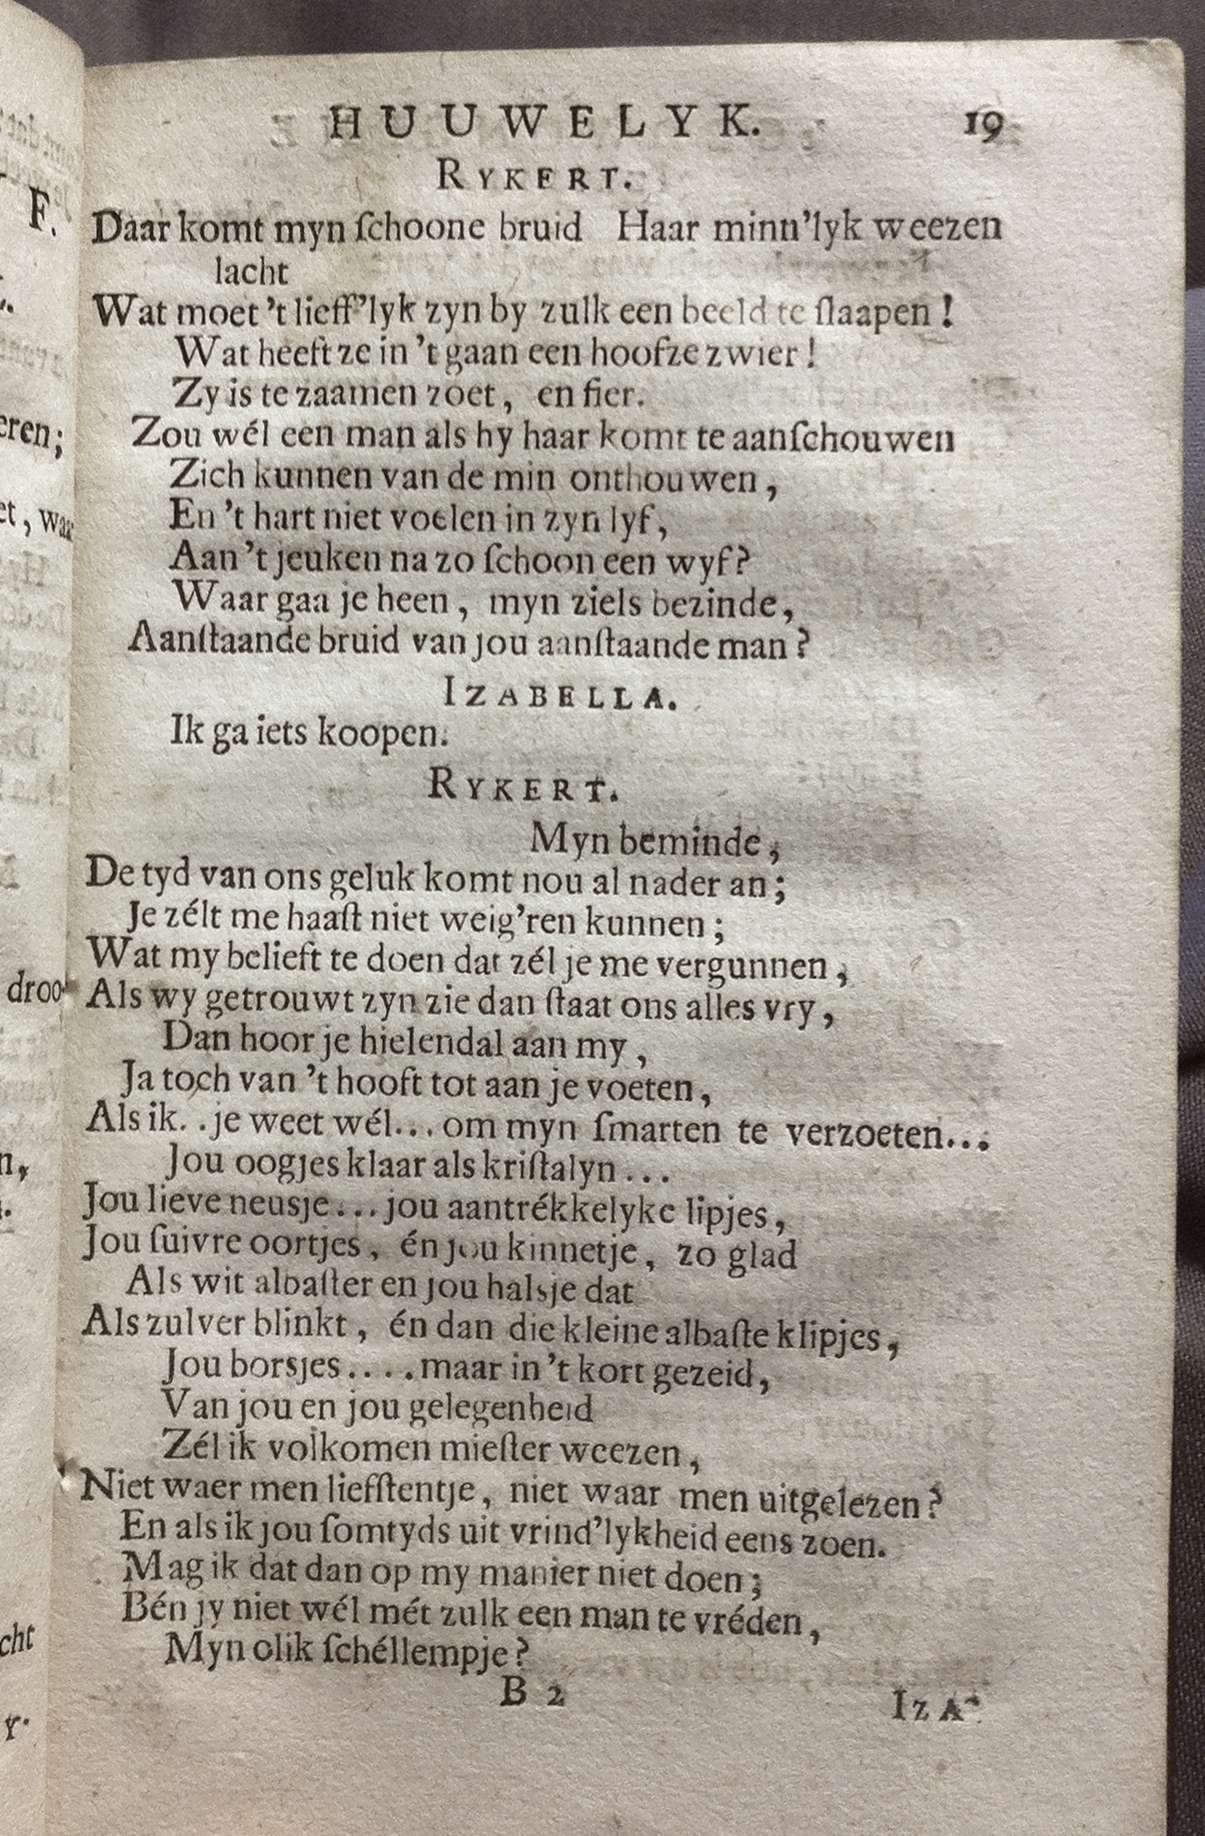 HUUWELYK. 19
RYKERT.
Daar komt myn ſchoone bruid Haar minn'lyk weezen
lacht
Wat moet 't lieff'lyk zyn by zulk een beeld te ſlaapen!
Wat heeft ze in 't gaan een hoofze zwier!
Zy is te zaamen zoet, en fier.
Zou wél een man als hy haar komt te aanſchouwen
Zich kunnen van de min onthouwen,
En 't hart niet voelen in zyn lyf,
Aan 't jeuken na zo ſchoon een wyf?
Waar gaa je heen, myn ziels bezinde,
Aanſtaande bruid van jou aanſtaande man?
IZABELLA.
Ik ga iets koopen.
RYKERT.
Myn beminde,
De tyd van ons geluk komt nou al nader an;
Je zélt me haaſt niet weig'ren kunnen;
Wat my belieft te doen dat zél je me vergunnen,
Als wy getrouwt zyn zie dan ſtaat ons alles vry,
Dan hoor je hielendal aan my,
Ja toch van 't hooft tot aan je voeten,
Als ik. . je weet wél... om myn ſmarten te verzoeten...
Jou oogjes klaar als kriſtalyn...
Jou lieve neusje... jou aantrékkelyke lipjes,
Jou ſuivre oortjes, én jou kinnetje, zo glad
Als wit albaſter en jou halsje dat
Als zulver blinkt, én dan die kleine albaſte klipjes,
Jou borsjes.... maar in 't kort gezeid,
Van jou en jou gelegenheid
Zél ik volkomen mieſter weezen,
Niet waer men liefſtentje, niet waar men uitgelezen?
En als ik jou ſomtyds uit vrind'lykheid eens zoen.
Mag ik dat dan op my manier niet doen;
Bén jy niet wél mét zulk een man te vréden,
Myn olik ſchéllempje?
B 2 IZA-
F.
eren;
et, waar
droo-
n,
cht